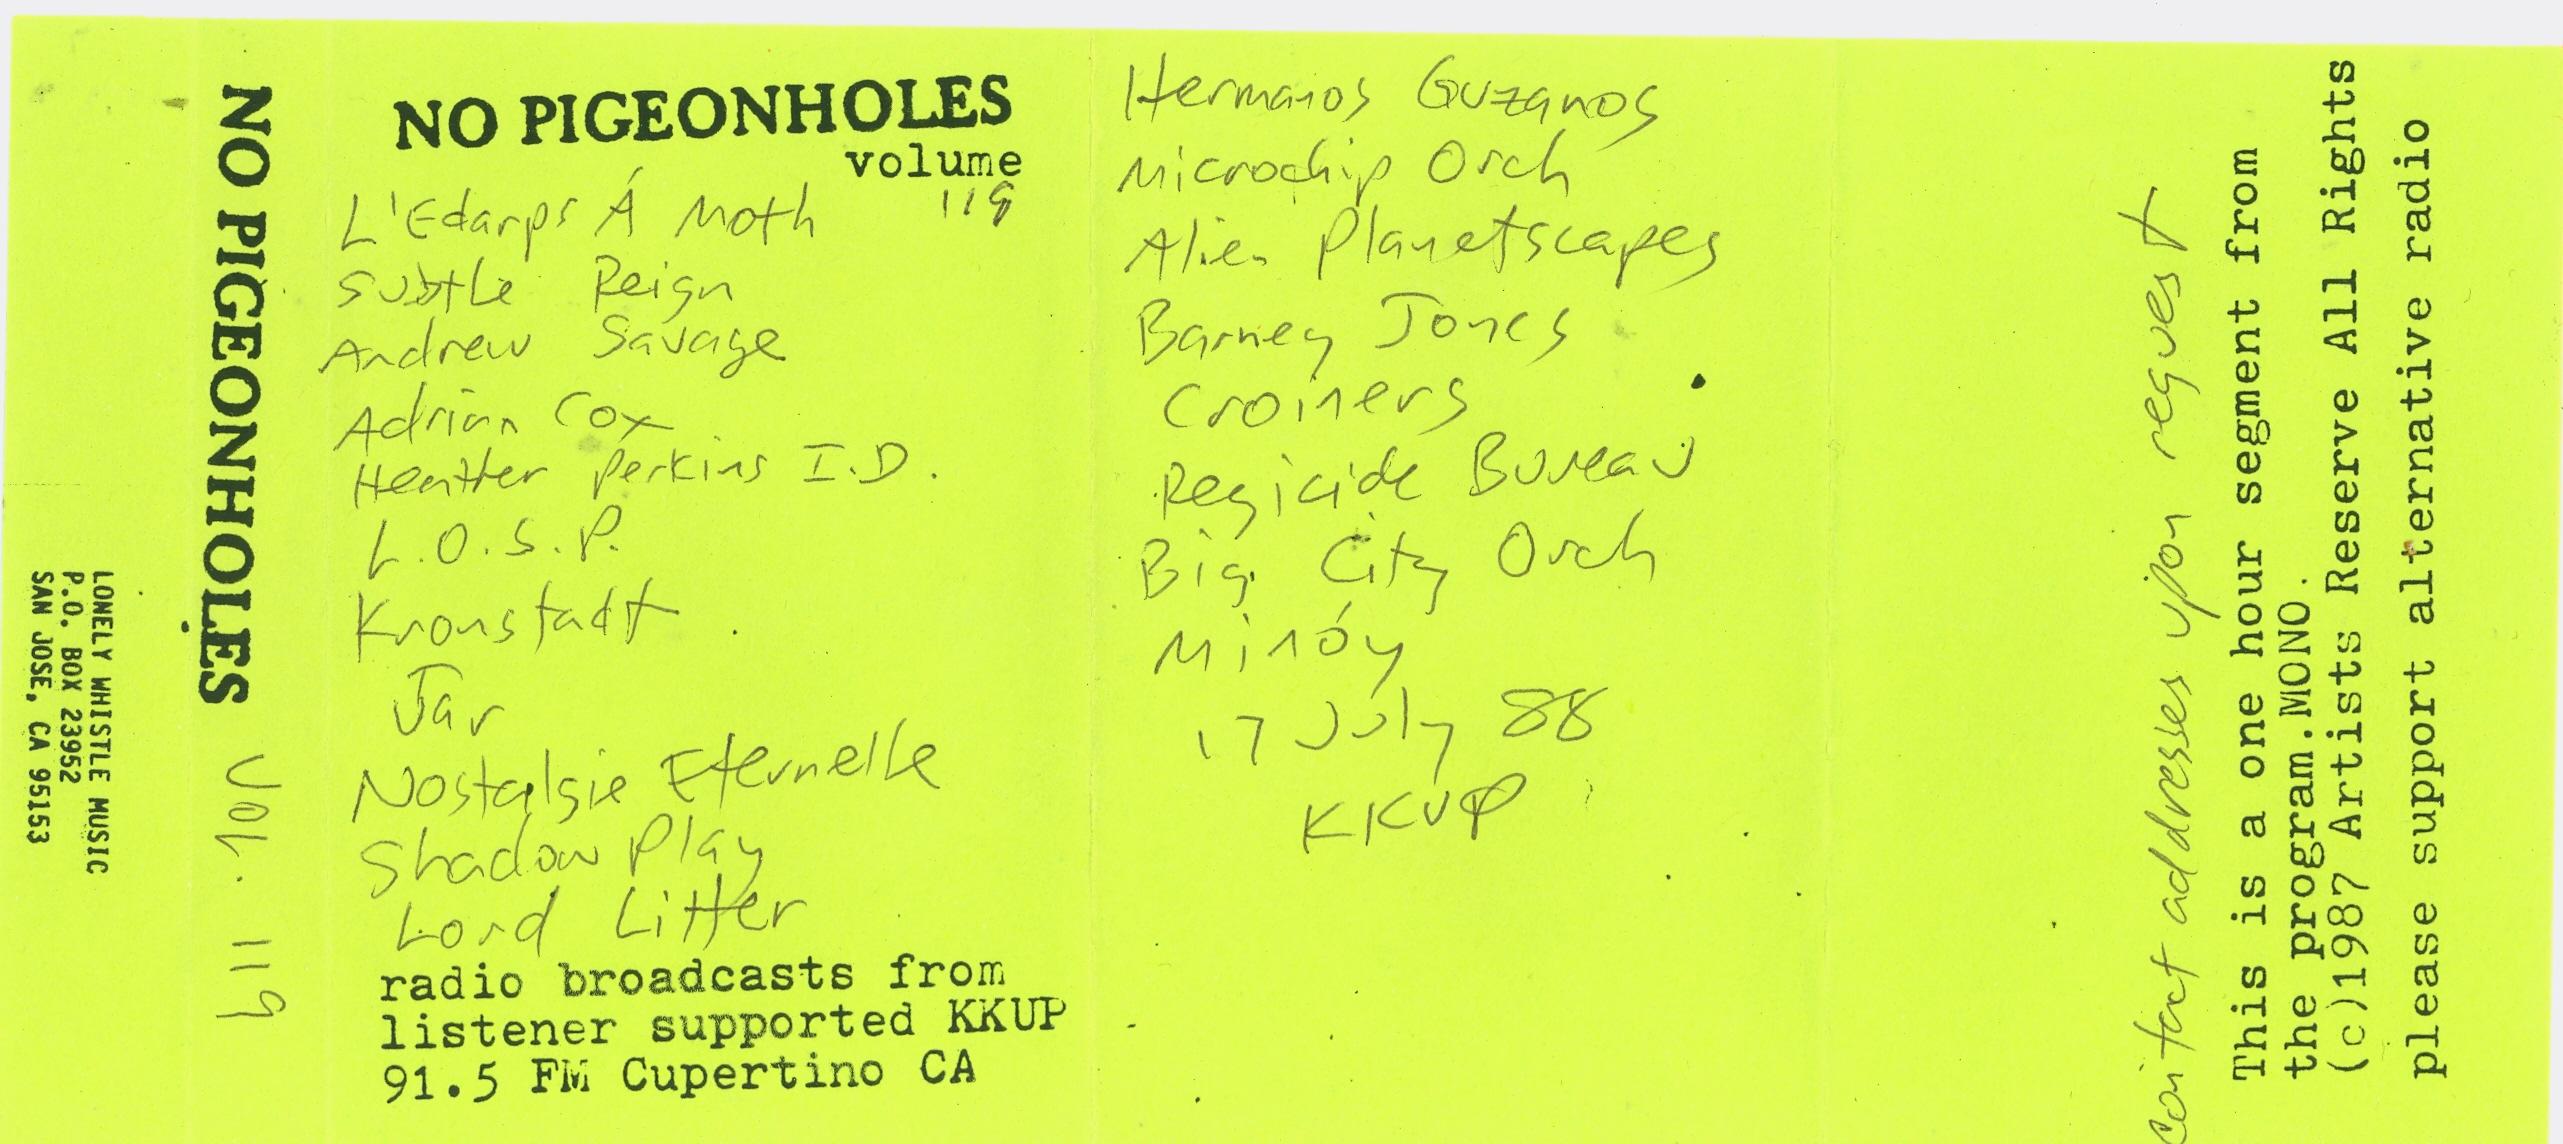 LONELY WHISTLE MUSIC
P.O. BOX 23952
SAN JOSE, CA 95153
NO PIGEONHOLES VOL. 119
NO PIGEONHOLES
volume
119
L'Edarps Á Moth
Subtle Reign
Andrew Savage
Adrian Cox
Heather Perkins I.D.
L.O.S.P.
Kronstadt
Jar
Nostalgie Eternelle
Shadow Play
Lord Litter
radio broadcasts from
listener supported KKUP
91.5 FM Cupertino CA
Hermanos Guzanos
Microchip Orch
Alien Planetscapes
Barney Jones
Croiners
Regicide Bureau
Big City Orch
Minóy
17 July 88
KKUP
contact addresses upon request
This is a one hour segment from
the program.MONO.
(c)1987 Artists Reserve All Rights
please support alternative radio